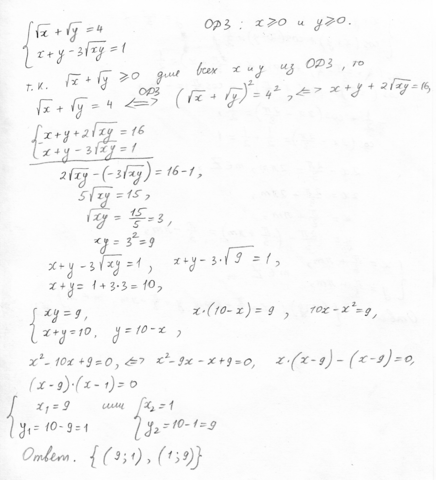 { √x + √y = 4 ОДЗ: x⩾0 и y⩾0.
{ x + y - 3√xy = 1
т.к. √x + √y ⩾ 0 для всех x и y из ОДЗ, то
√x + √y = 4 ⟺ ОДЗ (√x + √y)² = 4², ⟺ x + y + 2√xy = 16,
{ x + y + 2√xy = 16
{ x + y - 3√xy = 1
2√xy - (-3√xy) = 16 - 1,
5√xy = 15,
√xy = 15/5 = 3,
xy = 3² = 9
x + y - 3√xy = 1, x + y - 3·√9 = 1,
x + y = 1 + 3·3 = 10,
{ xy = 9, x·(10-x) = 9, 10x - x² = 9,
{ x + y = 10. y = 10 - x,
x² - 10x + 9 = 0, ⟺ x² - 9x - x + 9 = 0, x·(x-9) - (x-9) = 0,
(x-9)·(x-1) = 0
{ x₁ = 9 или { x₂ = 1
{ y₁ = 10 - 9 = 1 { y₂ = 10 - 1 = 9
Ответ. {(9;1), (1;9)}